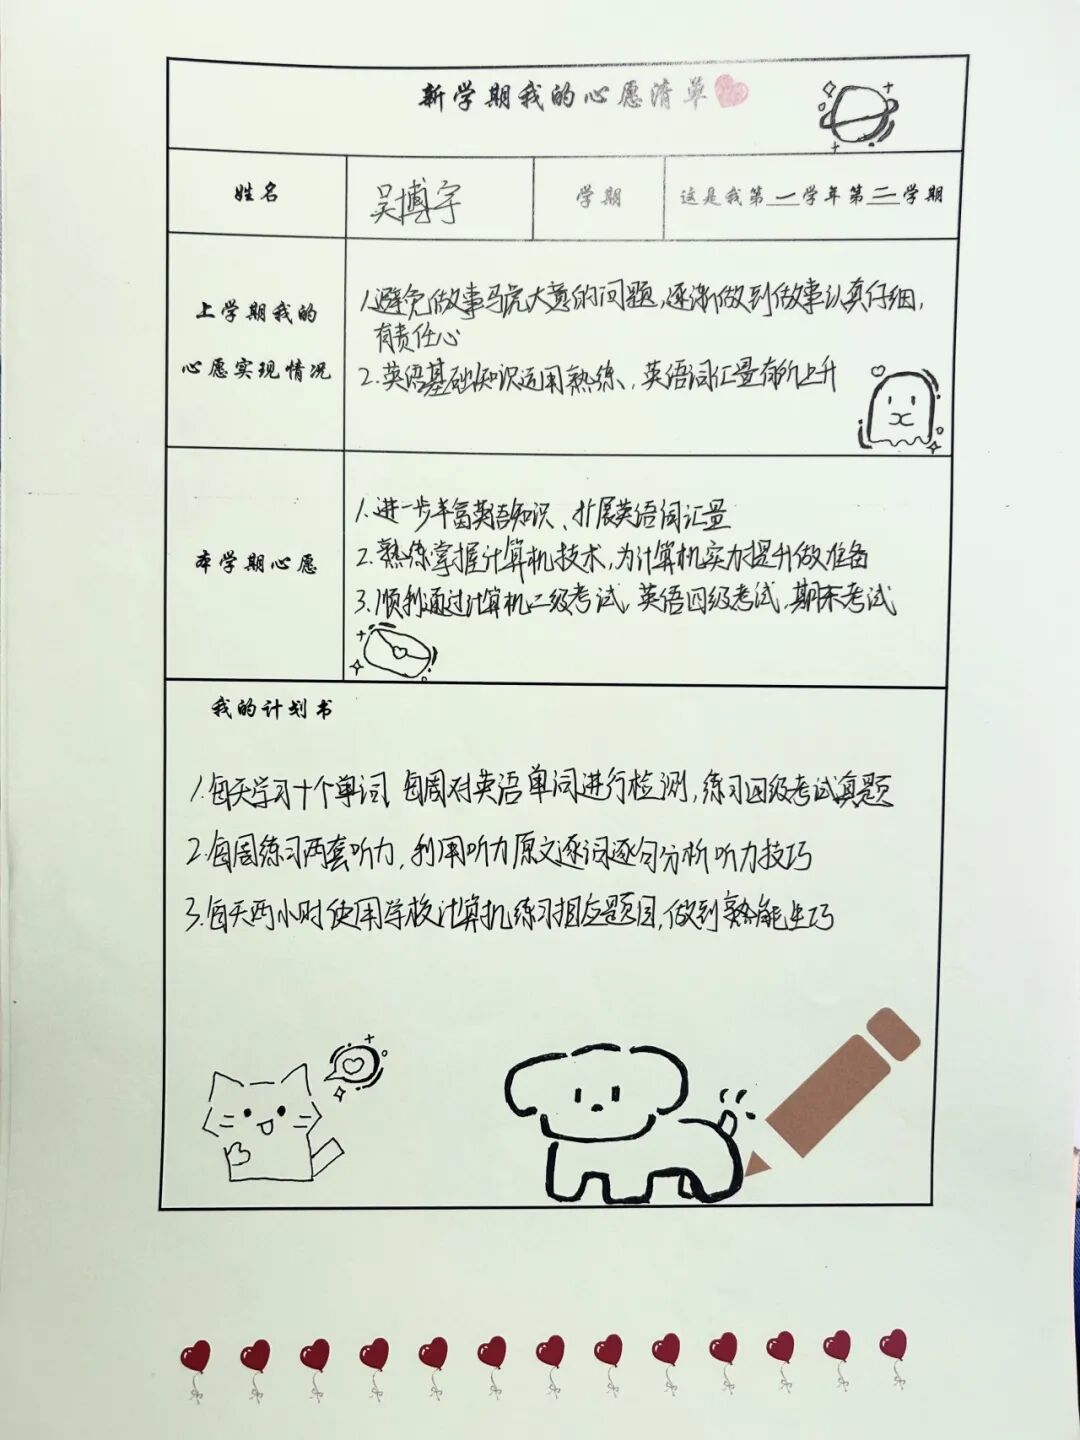 新学期我的心愿清单
姓名 吴博宇 学期 这是我第一学年第二学期
上学期我的
心愿实现情况
1.避免做事马虎大意的问题,逐渐做到做事认真仔细,
有责任心
2.英语基础知识运用熟练、英语词汇量有所上升
本学期心愿
1.进一步丰富英语知识、扩展英语词汇量
2.熟练掌握计算机技术,为计算机实力提升做准备
3.顺利通过计算机二级考试,英语四级考试,期末考试
我的计划书
1.每天学习十个单词,每周对英语单词进行检测,练习四级考试真题
2.每周练习两套听力,利用听力原文逐词逐句分析听力技巧
3.每天两小时使用学校计算机练习相应题目,做到熟能生巧